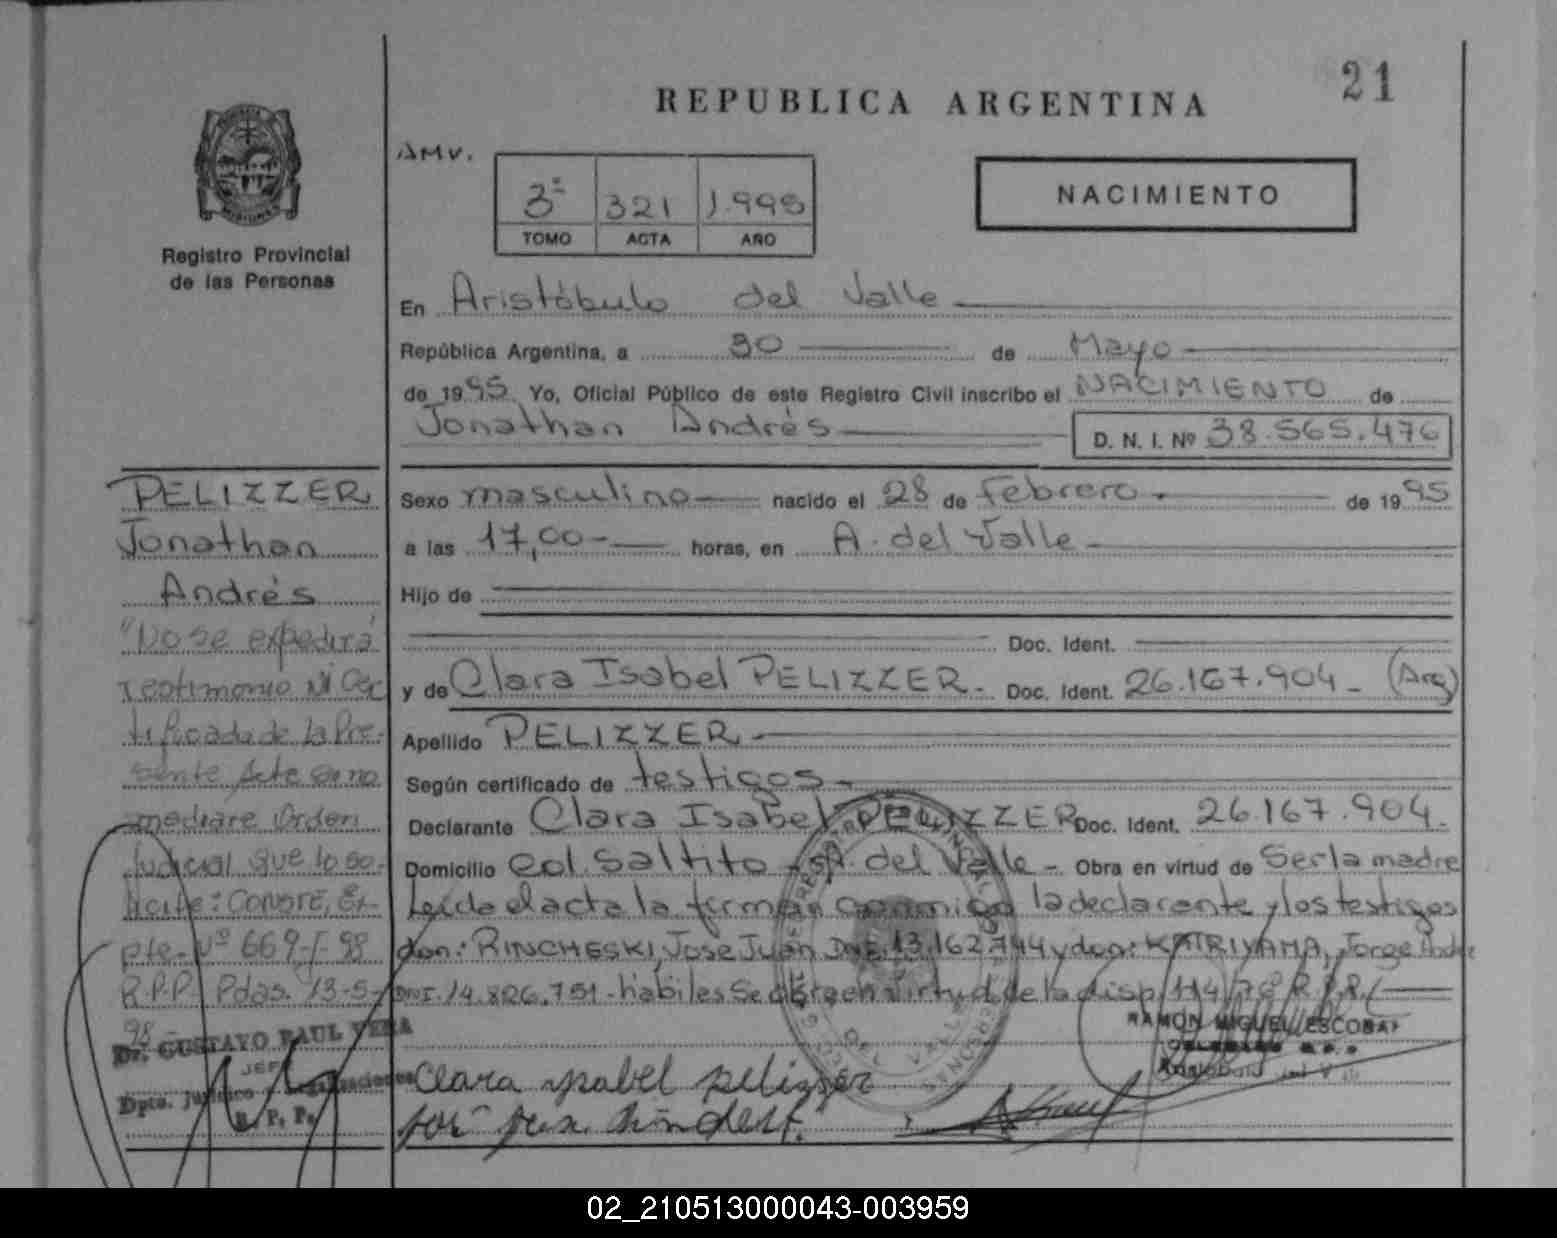 21
REPUBLICA ARGENTINA
AMV.
3º 321 1.995
TOMO ACTA AÑO
NACIMIENTO
Registro Provincial
de las Personas
En Aristóbulo del Valle
República Argentina, a 30 de Mayo
de 1995 Yo, Oficial Público de este Registro Civil inscribo el NACIMIENTO de
Jonathan Andrés D. N. I. Nº 38.565.476
Sexo masculino nacido el 28 de Febrero de 1995
a las 17,00 horas, en A. del Valle
Hijo de
Doc. Ident.
y de Clara Isabel PELIZZER Doc. Ident. 26.167.904 (Arg)
Apellido PELIZZER
Según certificado de testigos
Declarante Clara Isabel PELIZZER Doc. Ident. 26.167.904
Domicilio Col. Saltito A. del Valle Obra en virtud de Ser la madre
Leída el acta la firman conmigo la declarante y los testigos
don: RINCHESKI, Jose Juan DNI. 13.162.744 y don: KATRIYAMA, Jorge
DNI. 14.826.751 - habiles Se obra en virtud de la disp. 114/78 R.P.P.
RAMON MIGUEL ESCOBAR
Clara ysabel pelizzer
PELIZZER
Jonathan
Andrés
"No se expedirá
Testimonio Ni Cer
tificado de la Pre-
sente Acte si no
mediare Orden
Judicial que lo so-
licite: CONSTE, Ex-
pte. Nº 669-I-98
R.P.P. Pdas. 13-5-
98-
Dr. GUSTAVO RAUL VERA
JEFE
Dpto. Jurídico
R. P. P.
02_210513000043-003959